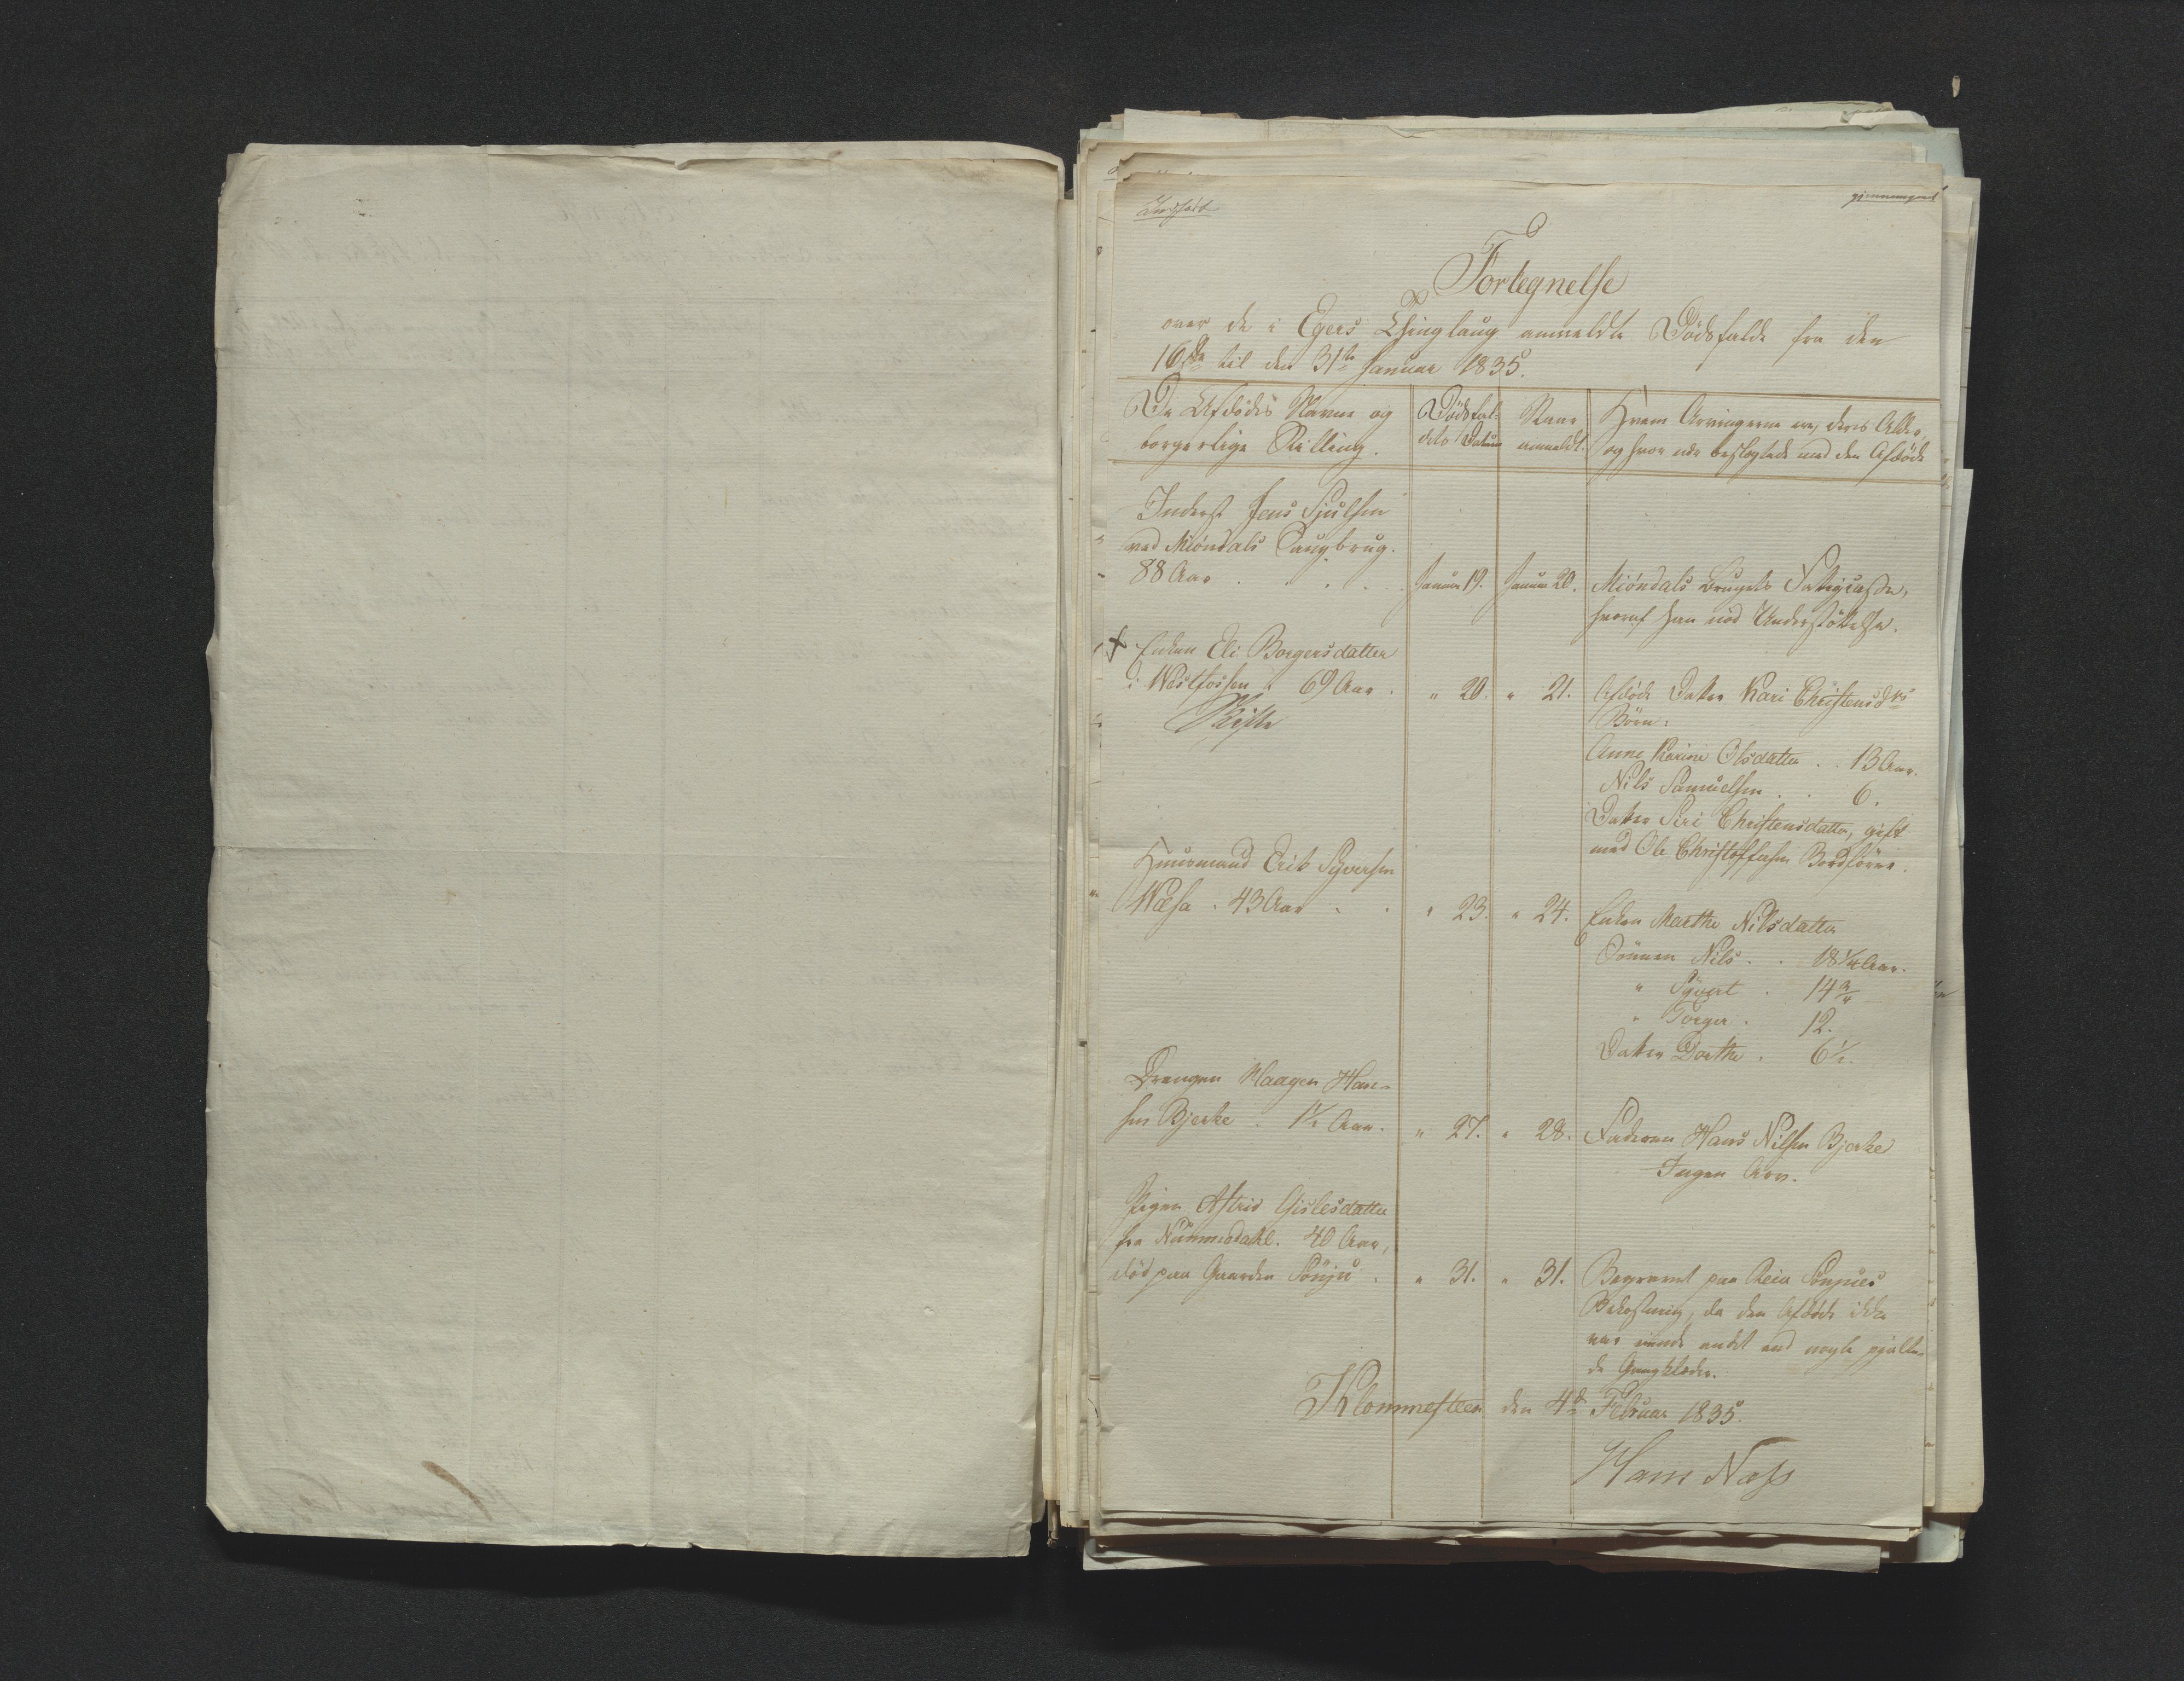 gjennemgaaet
Fortegnelse
over de i Egers Thinglaug anmeldte Dödsfalde fra den
16de til den 31te Januar 1835.
De Afdödes Navne og borgerlige Stilling.
Dödsfaldets Datum
Naar anmeldt.
Hvem Arvingerne ere, deres Alder, og hvor nær beslægtede med den Afdöde
Inderst Jens Sjulsen
ved Miöndals Saugbrug.
88 Aar . . . Januar 19. Januar 20. Miöndals Brugets Fattigcasse,
hvoraf han nöd Understöttelse.
+ Enken Eli Borgersdatter
i Westfossen . 69 Aar . " 20. " 21. Afdöde Datter Kari Christensdrs
Skifte
Börn:
Anne Karine Olsdatter . . 13 Aar.
Nils Samuelsen . . 6.
Datter Siri Christensdatter, gift
med Ole Christoffersen
Huusmand Erik Syversen
. 43 Aar . . " 23. " 24. Enken Marthe Nilsdatter
Sönnen Nils . . 18 1/4 Aar.
" Syvert . 14 3/4
" Torger . 12.
Datter Dorthe . 6 1/2.
Drengen Haagen Han-
sen Bjerke . 1 1/2 Aar. " 27. " 28. Faderen Hans Nilsen Bjerke
Ingen Arv.
Pigen Astrid Gislesdatter
fra Nummedahl. 40 Aar,
död paa Gaarden Sönju . " 31. " 31. Begravet paa Reier Sönjues
Bekostning, da den Afdöde ikke
var eiende andet end nogle pjalte-
de Gangklæder.
Klommesteen den 4de Februar 1835.
Hans Næss